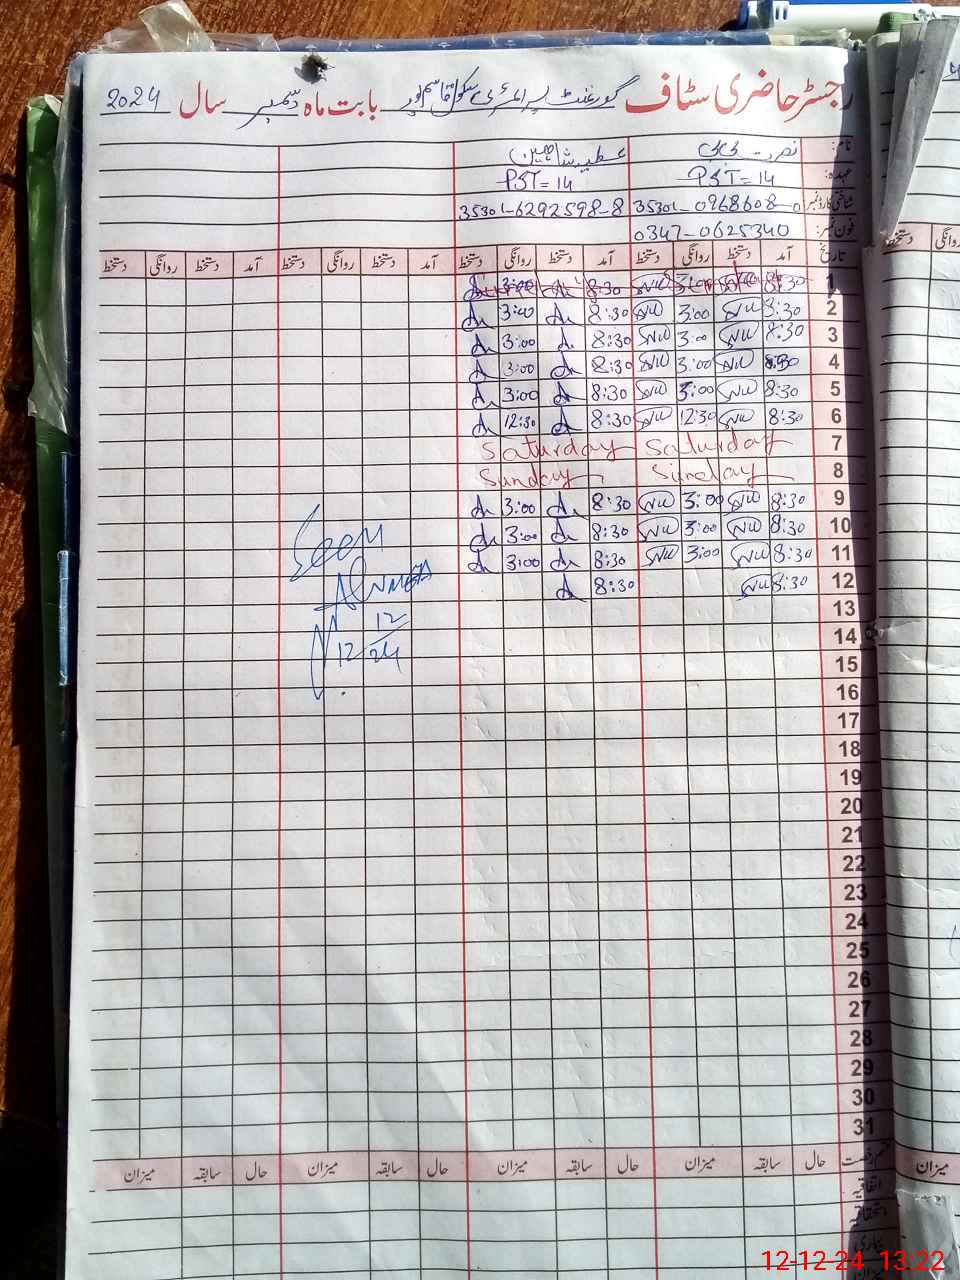 رجسٹر حاضری سٹاف گورنمنٹ پرائمری سکول قاسم پور بابت ماہ دسمبر سال 2024
نام: نصرت عطیہ شاہین
عہدہ: PST = 14 PST = 14
شناختی کارڈ نمبر 35301-0968608-0 35301-6292598-8
فون نمبر: 0347-0625340
تاریخ آمد دستخط روانگی دستخط آمد دستخط روانگی دستخط آمد دستخط روانگی دستخط آمد دستخط روانگی دستخط
1 8:30 3:00 8:30 3:00
2 8:30 3:00 8:30 3:00
3 8:30 3:00 8:30 3:00
4 8:30 3:00 8:30 3:00
5 8:30 3:00 8:30 3:00
6 8:30 12:30 8:30 12:30
7 Saturday Saturday
8 Sunday Sunday
9 8:30 3:00 8:30 3:00
10 8:30 3:00 8:30 3:00
11 8:30 3:00 8:30 3:00
12 8:30 8:30
13
14
15
16
17
18
19
20
21
22
23
24
25
26
27
28
29
30
31
Seen
12
12/24
قسم رخصت حال سابقہ میزان حال سابقہ میزان حال سابقہ میزان حال سابقہ میزان
اتفاقیہ
استحقاقیہ
بیماری
میزان
دستخط روانگی
میزان
12-12-24 13:22